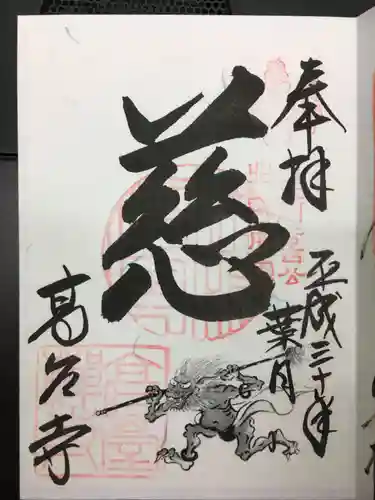 奉拝
平成三十年
葉月
慈
高台寺